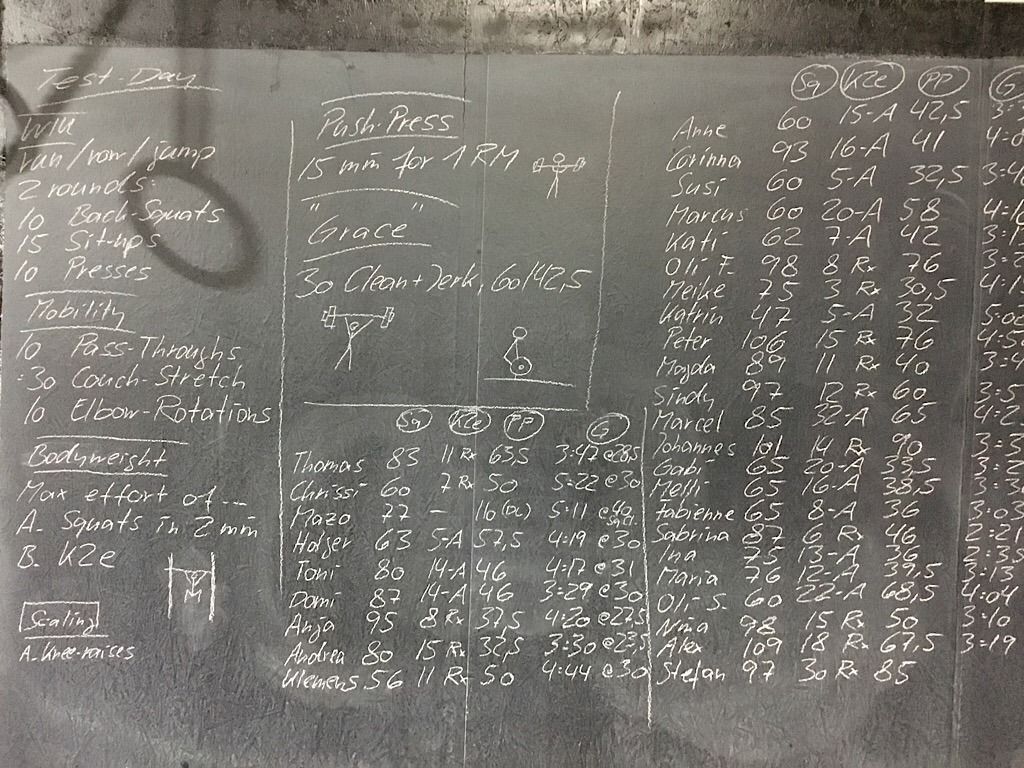 Test-Day
W/U
run/row/jump
2 rounds:
10 Back-Squats
15 Sit-ups
10 Presses
Mobility
10 Pass-Throughs
:30 Couch-Stretch
10 Elbow-Rotations
Bodyweight
Max effort of...
A. Squats in 2 min
B. K2e
Scaling
A. Knee-raises
Push-Press
15 min for 1 RM
" "
Grace
30 Clean + Jerk, 60/42,5
Sq K2e PP G
Thomas 83 11 Rx 63,5 3:47 @ 28,5
Chrissi 60 7 Rx 50 5:22 @ 30
Mazo 77 - 110 (DL) 5:11 @ 40
Holger 63 5-A 57,5 4:19 @ 30
Toni 80 14-A 46 4:17 @ 31
Domi 87 14-A 46 3:29 @ 30
Anja 95 8 Rx 37,5 4:20 @ 27,5
Andrea 80 15 Rx 32,5 3:30 @ 23,5
Klemens 56 11 Rx 50 4:44 @ 30
Sq K2e PP G
Anne 60 15-A 42,5
Corinna 93 16-A 41
Susi 60 5-A 32,5
Marcus 60 20-A 58
Kati 62 7-A 42
Oli F. 98 8 Rx 76
Meike 75 3 Rx 30,5
Katrin 47 5-A 32
Peter 106 15 Rx 76
Magda 89 11 Rx 40
Sindy 97 12 Rx 60
Marcel 85 32-A 65
Johannes 101 14 Rx 90
Gabi 65 20-A 33,5
Melli 65 16-A 38,5
Fabienne 65 8-A 36
Sabrina 87 6 Rx 46 2:21
Ina 75 13-A 36 2:38
Maria 76 12-A 39,5 3:13
Oli S. 60 22-A 68,5 4:04
Nina 98 15 Rx 50 3:10
Alex 109 18 Rx 67,5 3:19
Stefan 97 30 Rx 85